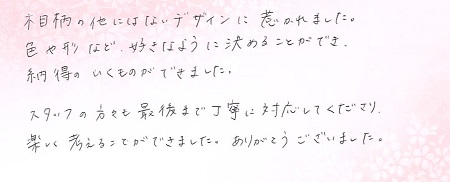 木目柄の他にはないデザインに惹かれました。
色や形など、好きなように決めることができ、
納得のいくものができました。
スタッフの方々も最後まで丁寧に対応してくださり、
楽しく考えることができました。ありがとうございました。